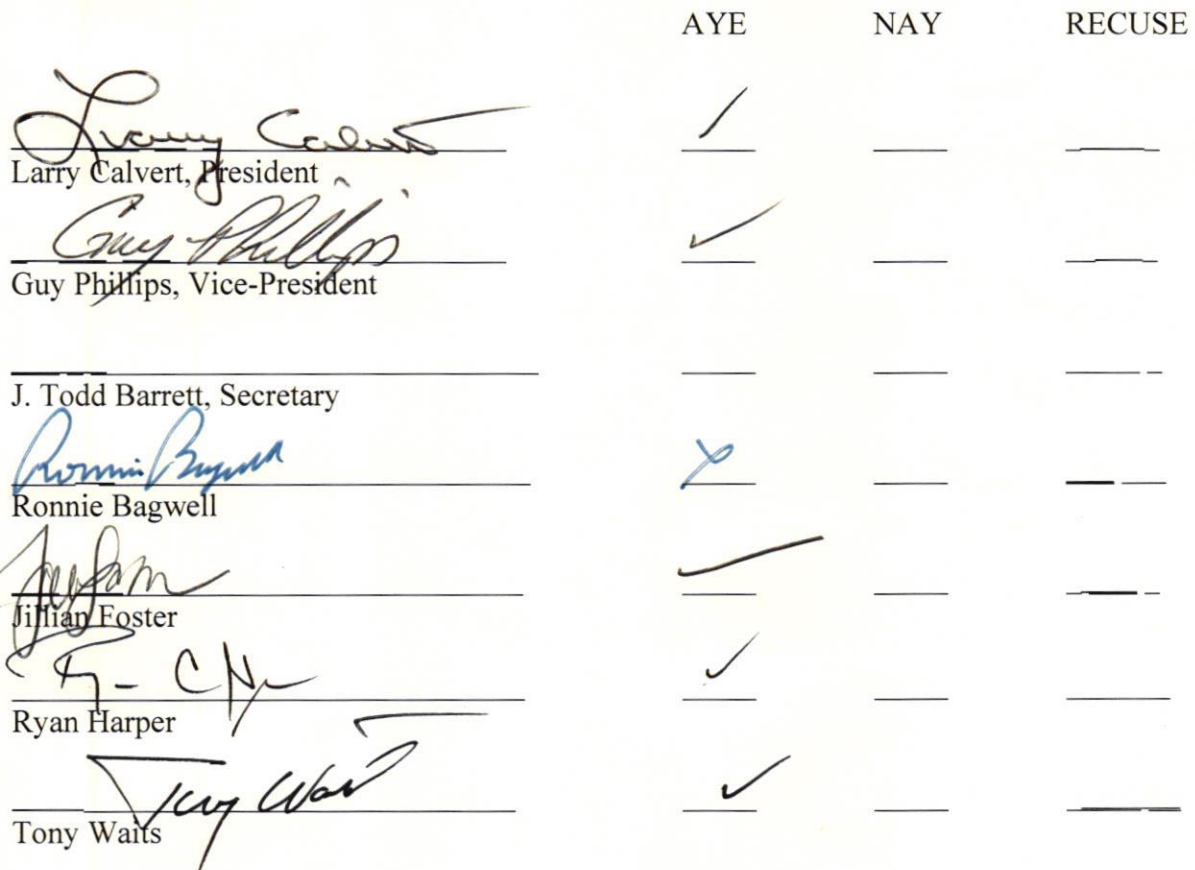 AYE NAY RECUSE
Larry Calvert ✓
Larry Calvert, President
Guy Phillips ✓
Guy Phillips, Vice-President
J. Todd Barrett, Secretary
Ronnie Bagwell X
Ronnie Bagwell
✓
Jillian Foster
✓
Ryan Harper
Tony Wait ✓
Tony Waits